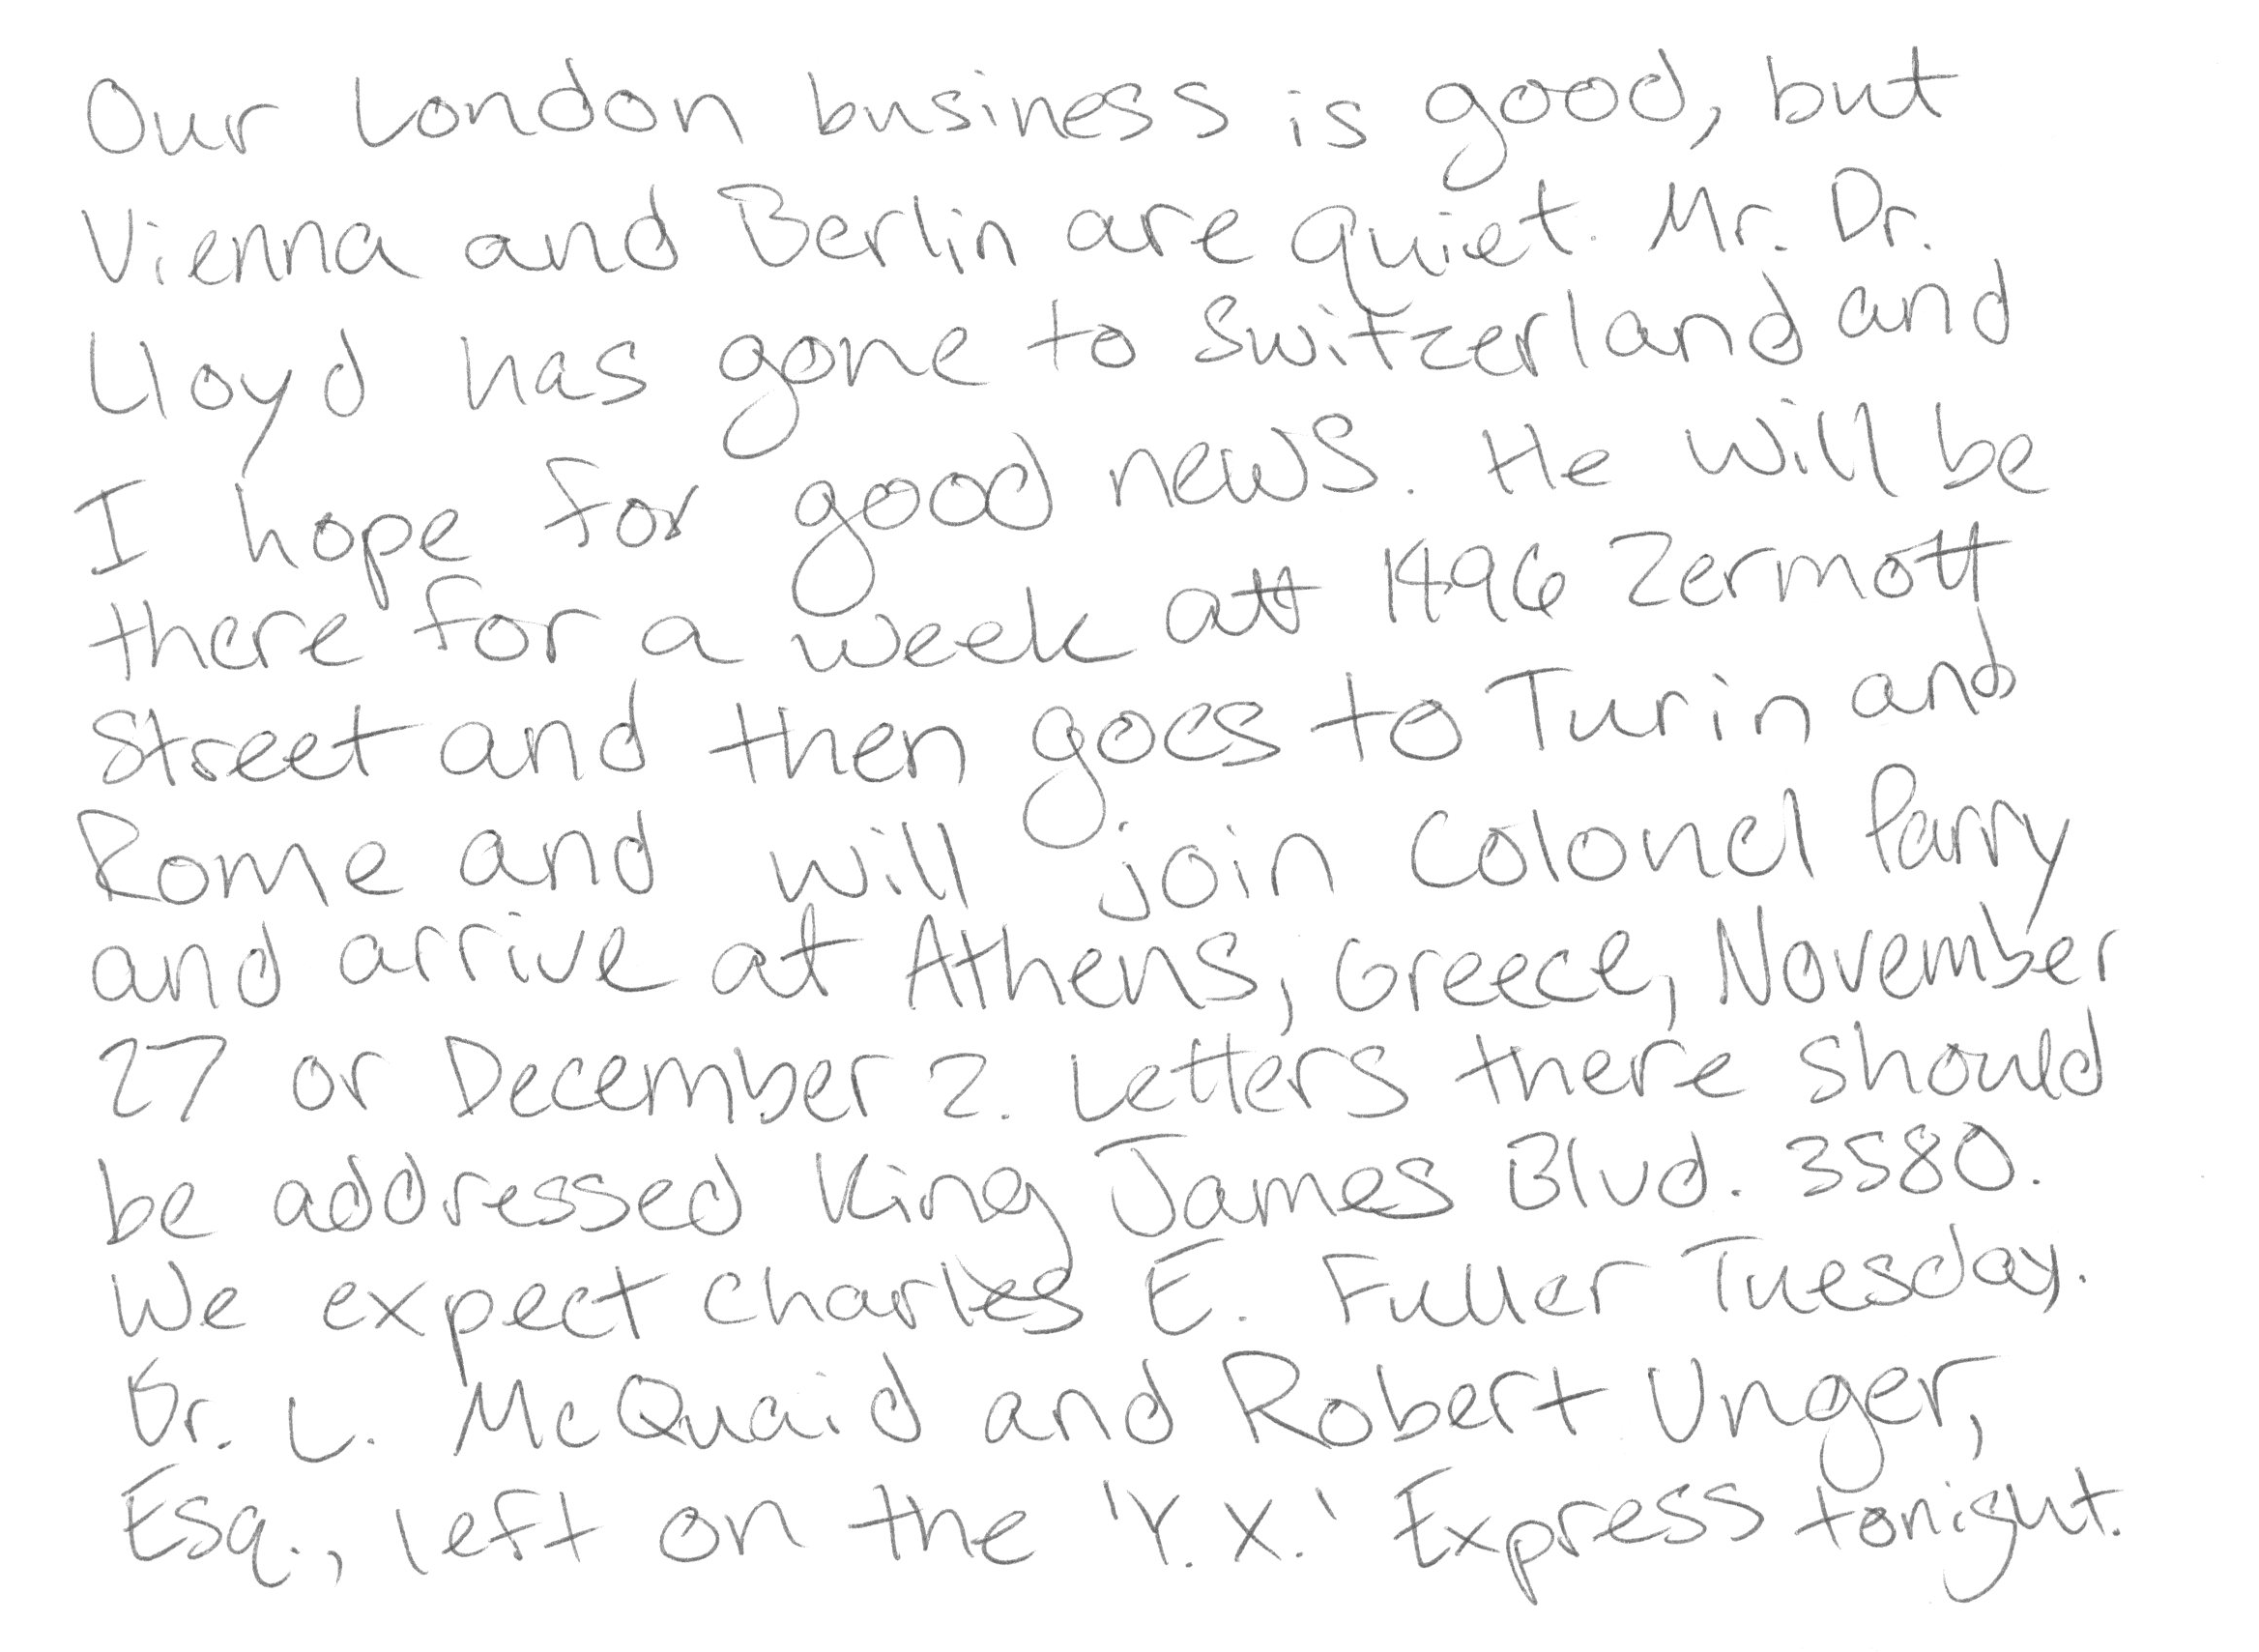 Our London business is good, but
Vienna and Berlin are quiet. Mr. Dr.
Lloyd has gone to Switzerland and
I hope for good news. He will be
there for a week at 1496 Zermott
Street and then goes to Turin and
Rome and will join Colonel Parry
and arrive at Athens, Greece, November
27 or December 2. Letters there should
be addressed King James Blvd. 3580.
We expect Charles E. Fuller Tuesday.
Dr. L. McQuaid and Robert Unger,
Esq., left on the 'Y. X.' Express tonight.